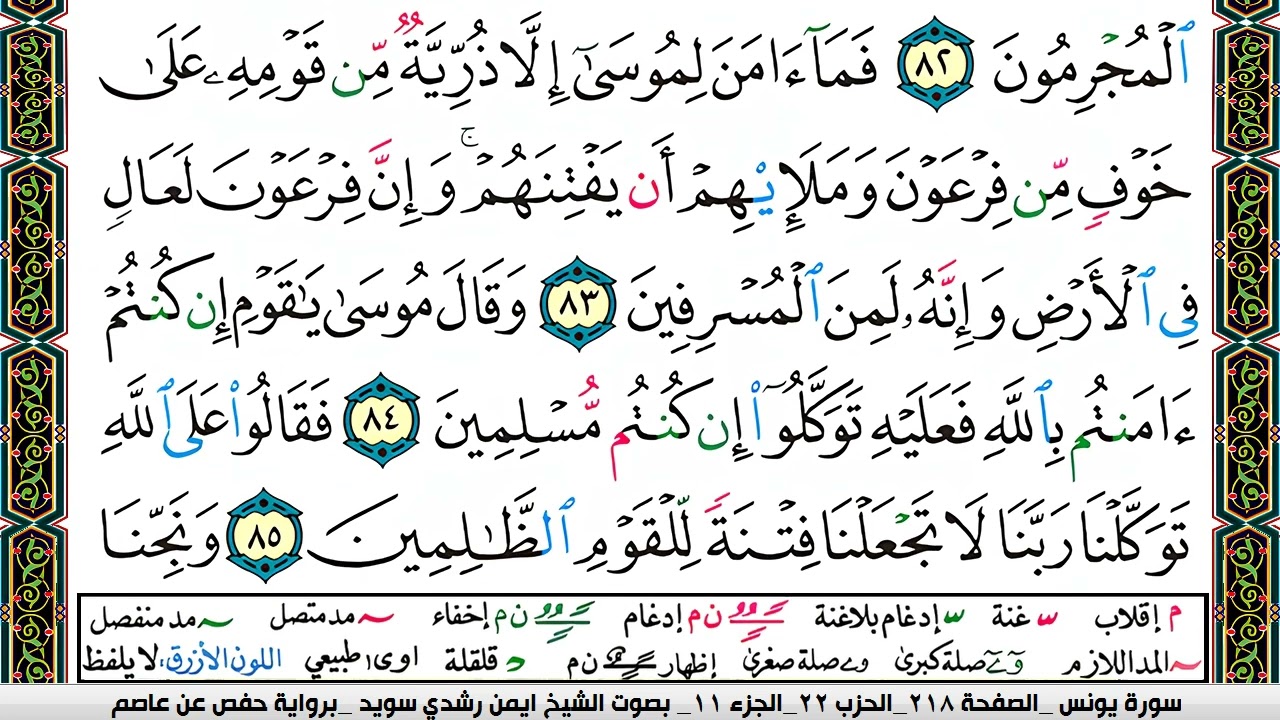 ٱلْمُجْرِمُونَ ٨٢ فَمَآ ءَامَنَ لِمُوسَىٰٓ إِلَّا ذُرِّيَّةٌ مِّن قَوْمِهِۦ عَلَىٰ
خَوْفٍ مِّن فِرْعَوْنَ وَمَلَإِي۟هِمْ أَن يَفْتِنَهُمْ ۚ وَإِنَّ فِرْعَوْنَ لَعَالٍ
فِى ٱلْأَرْضِ وَإِنَّهُۥ لَمِنَ ٱلْمُسْرِفِينَ ٨٣ وَقَالَ مُوسَىٰ يَٰقَوْمِ إِن كُنتُمْ
ءَامَنتُم بِٱللَّهِ فَعَلَيْهِ تَوَكَّلُوٓا۟ إِن كُنتُم مُّسْلِمِينَ ٨٤ فَقَالُوا۟ عَلَى ٱللَّهِ
تَوَكَّلْنَا رَبَّنَا لَا تَجْعَلْنَا فِتْنَةً لِّلْقَوْمِ ٱلظَّٰلِمِينَ ٨٥ وَنَجِّنَا
م إقلاب س غنة س إدغام بلاغنة ن م إدغام ن م إخفاء مد متصل مد منفصل
المد اللازم و ے صلة كبرى و ے صلة صغرى إظهار ن م د قلقلة اوى طبيعي اللون الأزرق، لا يلفظ
سورة يونس _الصفحة ٢١٨_الحزب ٢٢_الجزء ١١_ بصوت الشيخ ايمن رشدي سويد _برواية حفص عن عاصم